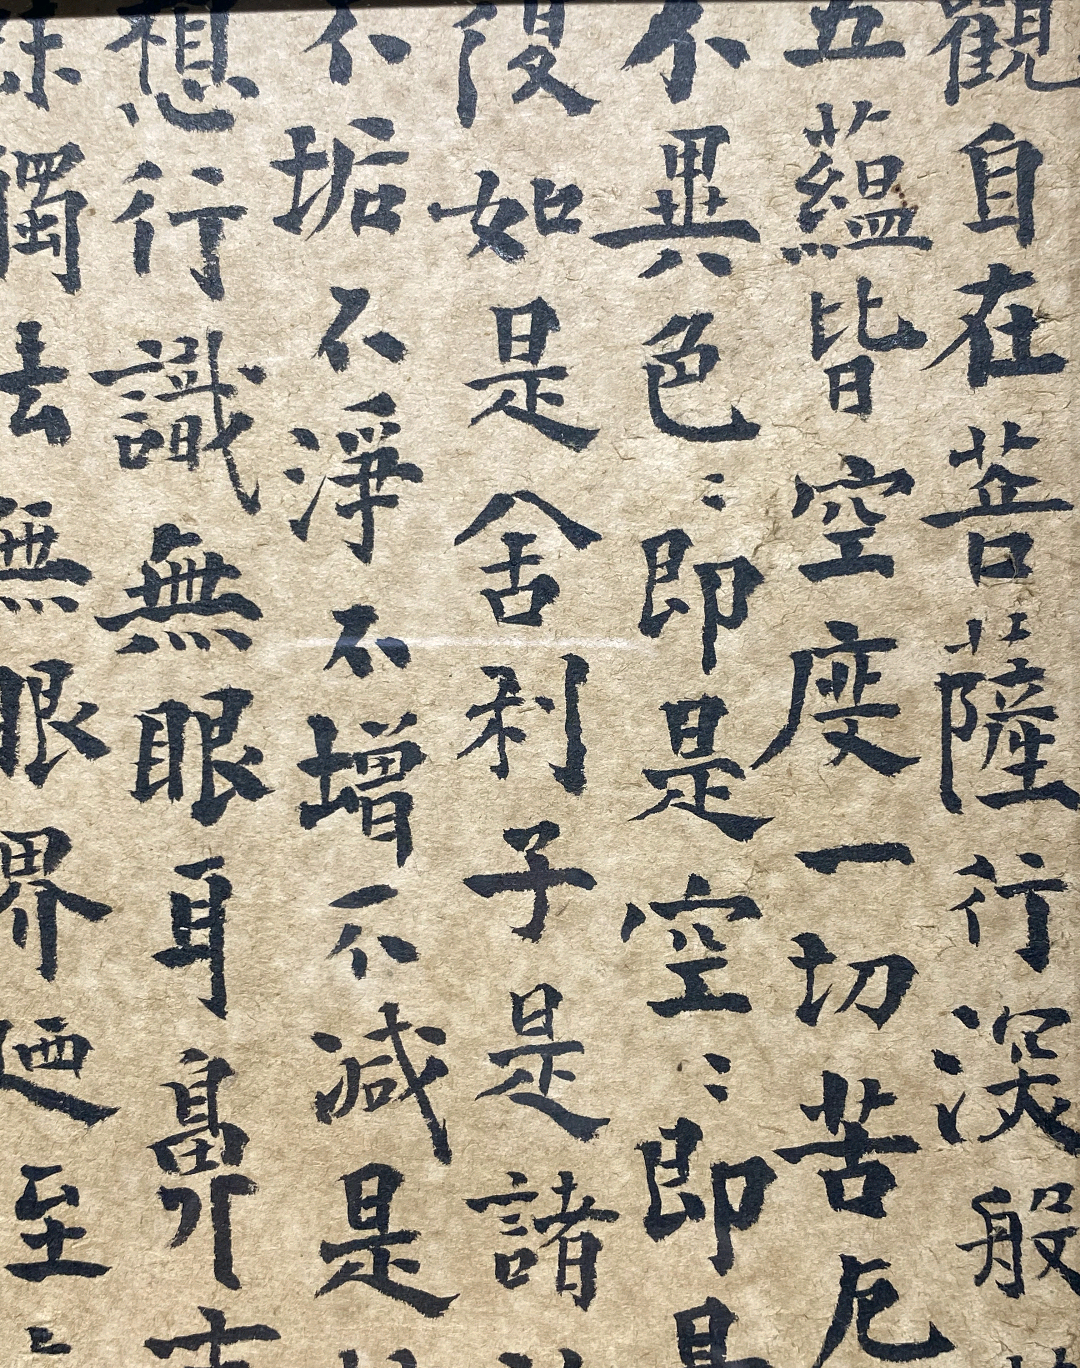 觀自在菩薩行深般
五蘊皆空度一切苦厄
不異色〻即是空〻即是
復如是舍利子是諸
不垢不淨不增不減是
想行識無眼耳鼻舌
觸法無眼界廼至